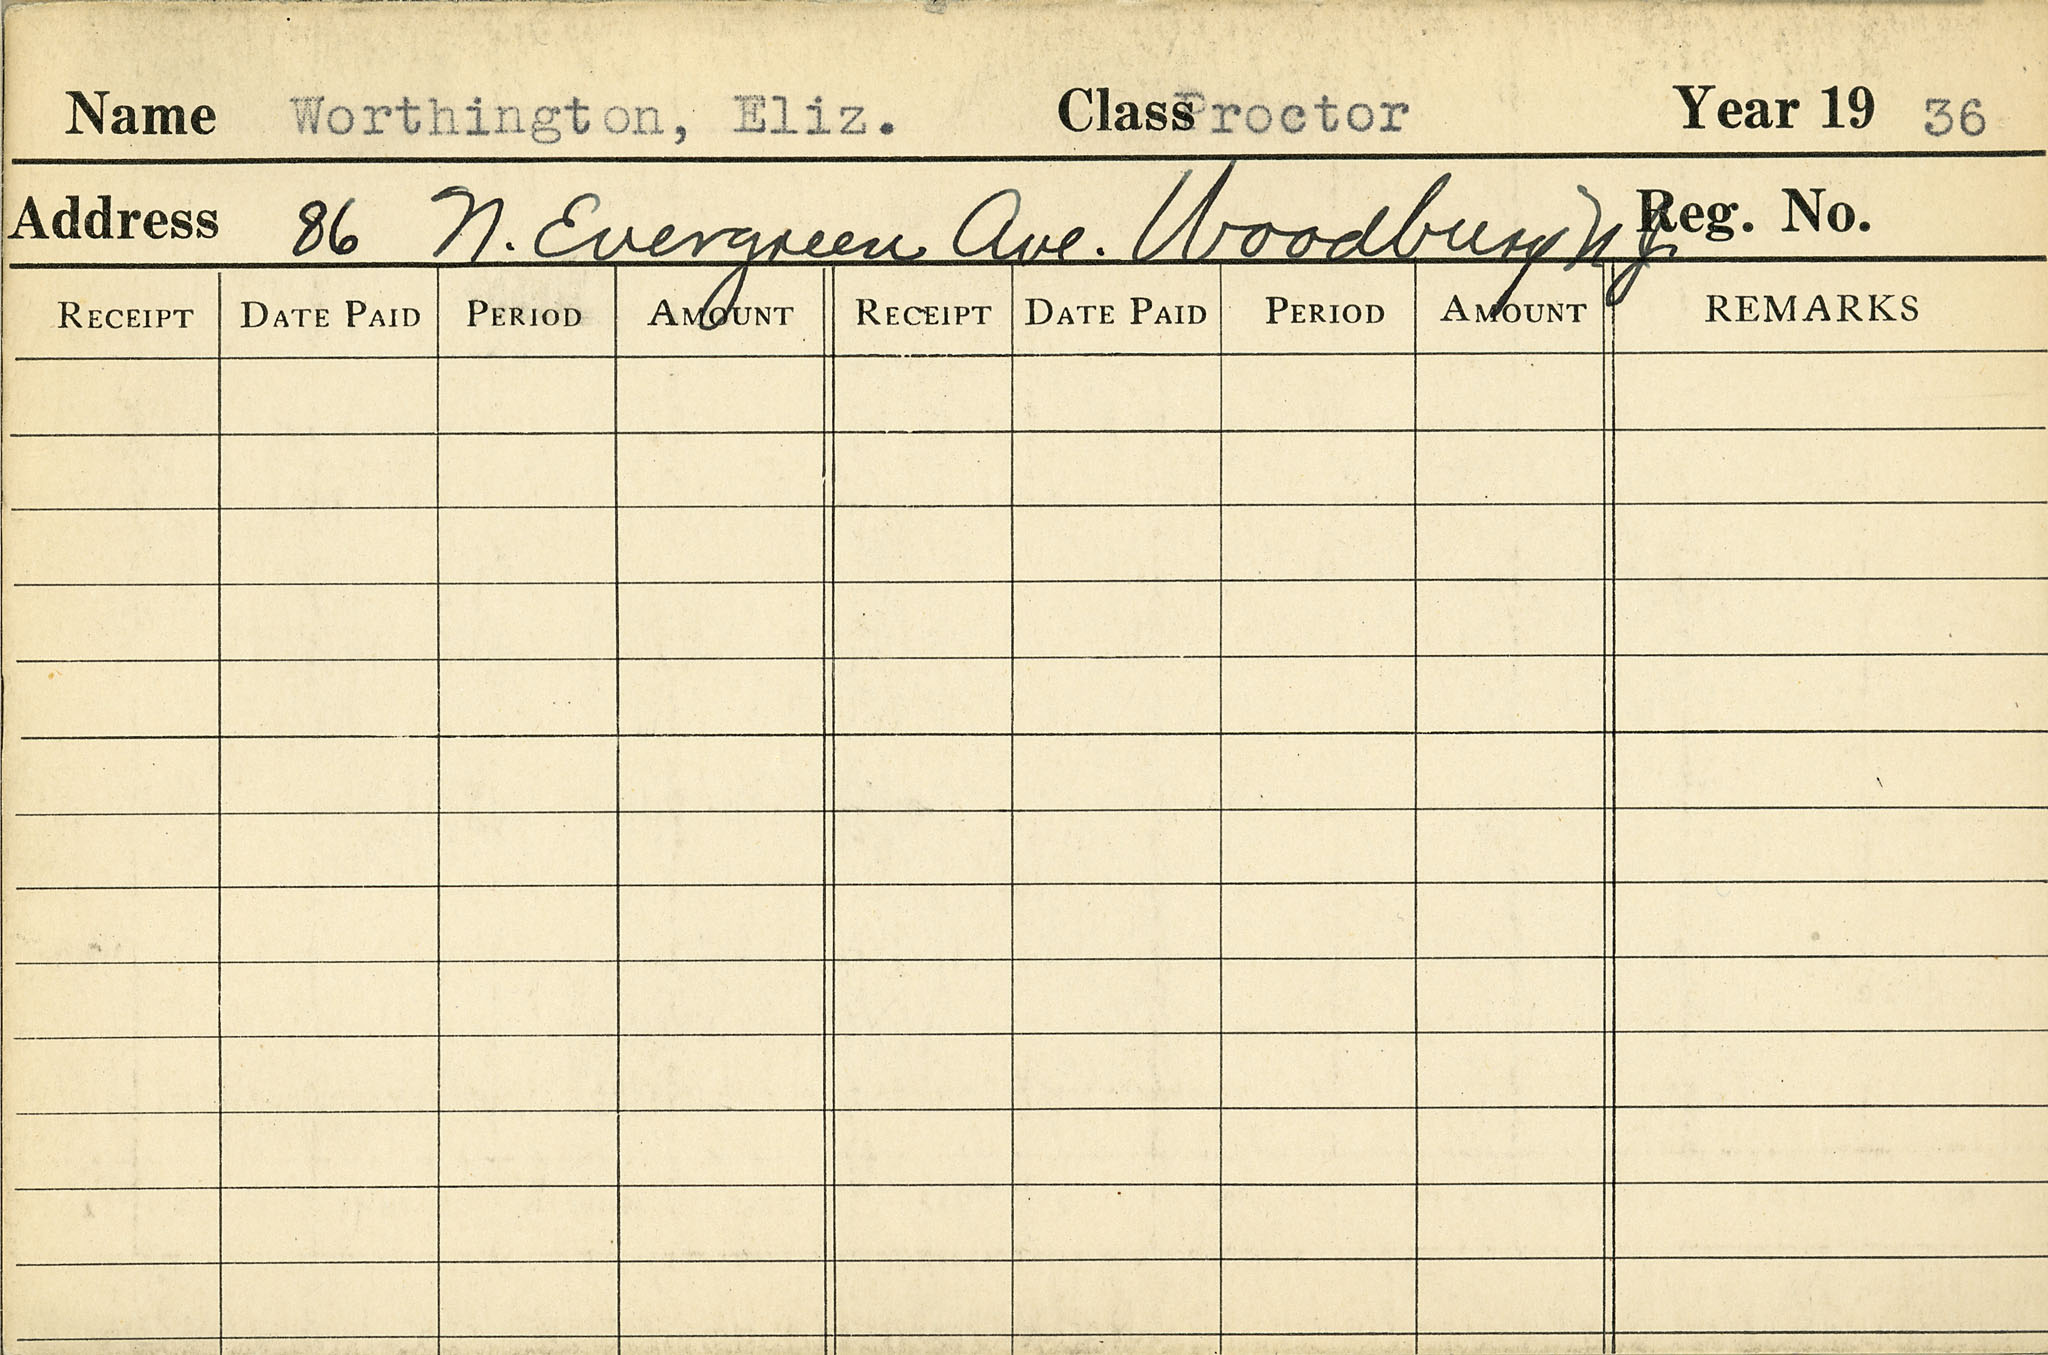 Name Worthington, Eliz. Class Proctor Year 19 36
Address 86 N. Evergreen Ave. Woodbury N J. Reg. No.
RECEIPT DATE PAID PERIOD AMOUNT RECEIPT DATE PAID PERIOD AMOUNT REMARKS